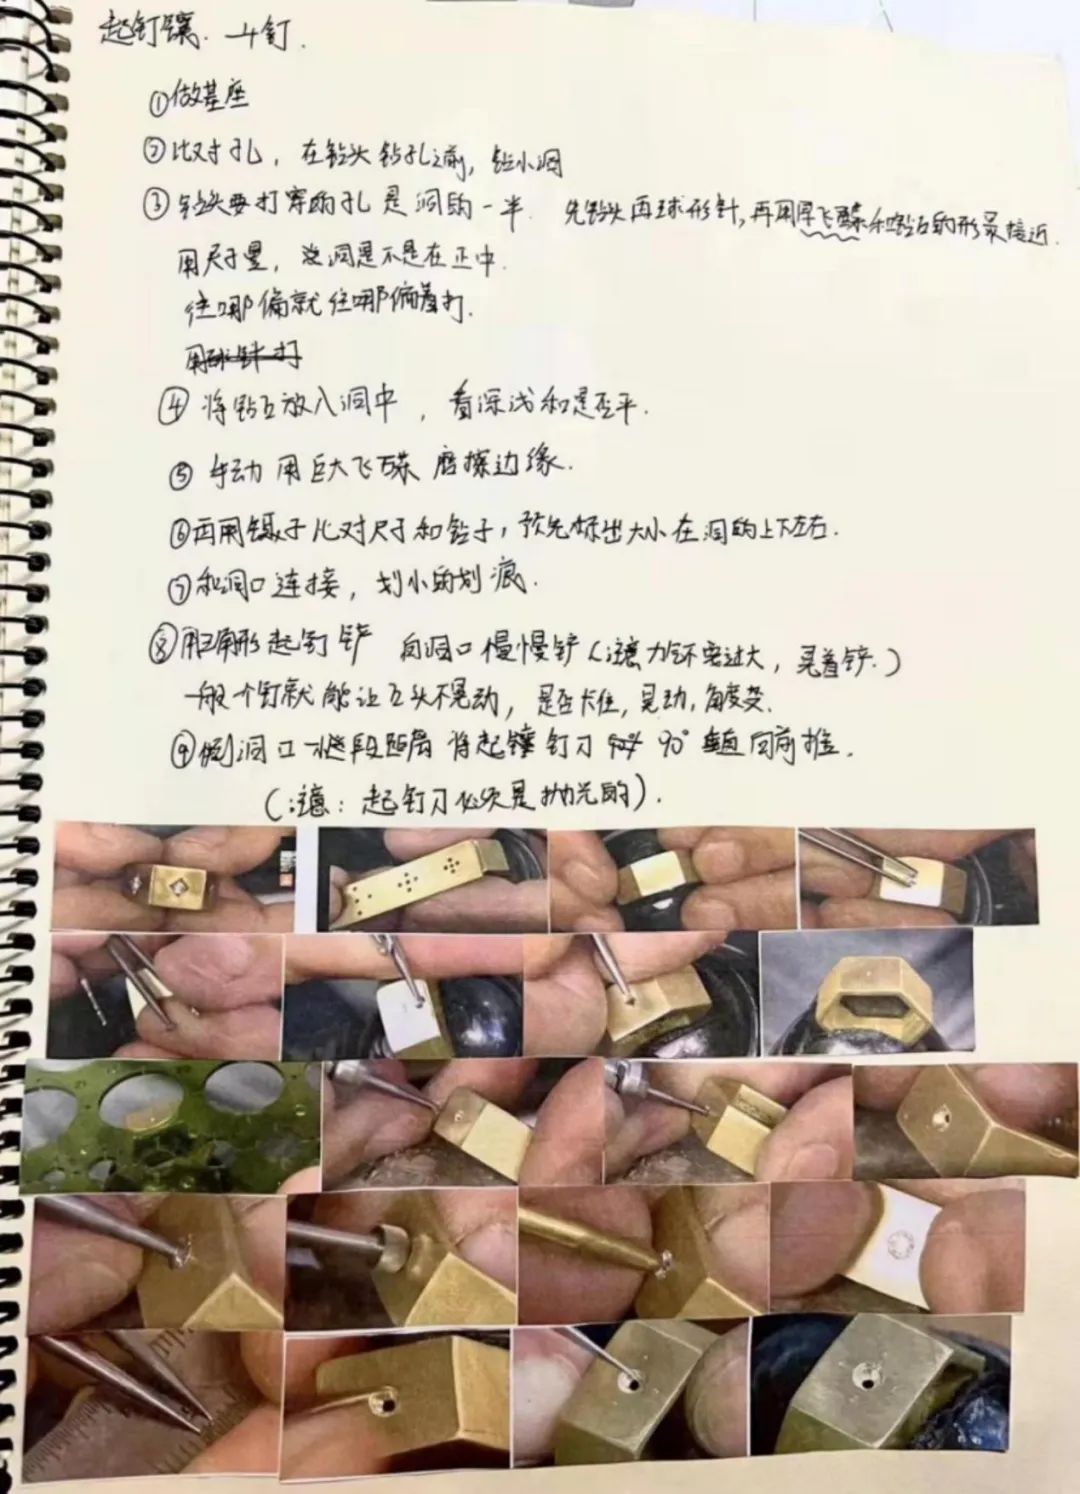 起钉镶. 4钉.
①做基座
②比对孔，在钻头钻孔之前，钻小洞
③钻头要打穿的孔是洞的一半. 先钻头再球形针，再用厚飞碟和钻石的形最接近.
用尺子量，没洞是不是在正中.
往哪偏就往哪偏着打.
用球针打
④将钻石放入洞中，看深浅和是否平.
⑤手动用巨大飞碟磨擦边缘.
⑥再用镊子比对尺子和钻子，预先标出大小在洞的上下左右.
⑦和洞口连接，划小的划痕.
⑧用三角形起钉铲 向洞口慢慢铲（注意力不要过大，晃着铲.）
一般个钉就能让石头不晃动，是否卡住，晃动，角度变.
⑨侧洞口一些段距离将起镶钉刀 90° 垂直向前推.
（注意：起钉刀必须是抛光的）.